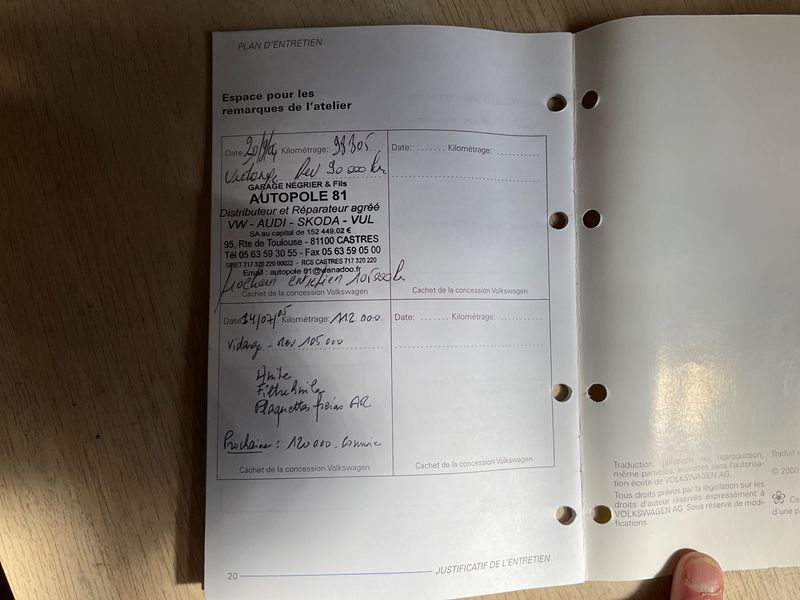 PLAN D'ENTRETIEN
Espace pour les
remarques de l'atelier
Date: Kilométrage: 98305
Vidange Rev 90000 km
GARAGE NÉGRIER & Fils
AUTOPOLE 81
Distributeur et Réparateur agréé
VW - AUDI - SKODA - VUL
SA au capital de 152 449.02 €
95, Rte de Toulouse - 81100 CASTRES
Tél 05 63 59 30 55 - Fax 05 63 59 05 00
SIRET 717 320 220 00022 - RCS CASTRES 717 320 220
Email : autopole.81@wanadoo.fr
prochain entretien 105000 km
Cachet de la concession Volkswagen
Date: ....... Kilométrage: ...........
Cachet de la concession Volkswagen
Date: 14/07/05 Kilométrage: 112 000
Vidange - Rev 105 000
Huile
Filtre huile
Plaquettes freins AR
Prochaine : 120 000
Cachet de la concession Volkswagen
Date: ...... Kilométrage: ............
Cachet de la concession Volkswagen
20
JUSTIFICATIF DE L'ENTRETIEN
Traduction, reproduction,
même partielles, interdites sans l'autorisa-
tion écrite de VOLKSWAGEN AG.
Tous droits prévus par la législation sur les
droits d'auteur réservés expressément à
VOLKSWAGEN AG. Sous réserve de modi-
fications.
Traduit
© 2000
Ce
d'une p